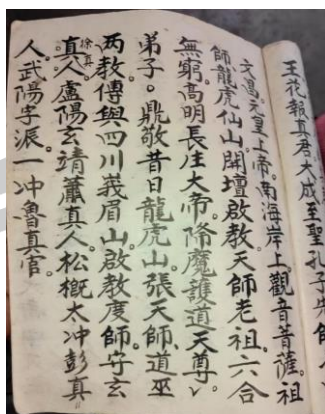 王花報真君大成至聖孔子先師
文昌元皇上帝。南海岸上觀音菩薩。祖
師龍虎仙山開壇啟教天師老祖。六合
無窮高明長生大帝。降魔護道天尊。
弟子。鼎敬昔日龍虎山張天師。道巫
两教傳與四川峩眉山。啟教度師。守玄
徐真
真人。盧陽玄靖蕭真人。松概太冲彭真
人武陽字派一冲魯真官。